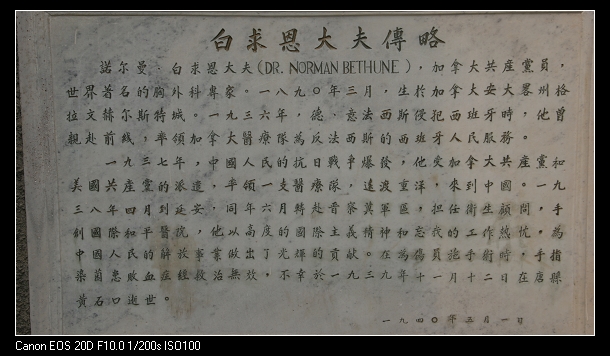 白求恩大夫傳略
諾尔曼·白求恩大夫(DR. NORMAN BETHUNE),加拿大共産黨員,
世界著名的胸外科專家。一八九〇年三月,生於加拿大安大畧州格
拉文赫尔斯特城。一九三六年,德、意法西斯侵犯西班牙時,他曾
親赴前線,率領加拿大醫療隊為反法西斯的西班牙人民服務。
一九三七年,中國人民的抗日戰爭爆發,他受加拿大共産黨和
美國共産黨的派遣,率領一支醫療隊,遠渡重洋,來到中國。一九
三八年四月到延安,同年六月轉赴晉察冀軍區,担任衛生顧問,手
創國際和平醫院,他以高度的國際主義精神和忘我的工作熱忱,為
中國人民的解放事業做出了光輝的貢献。在為傷員施手術時,手指
染菌患敗血症經救治無效,不幸於一九三九年十一月十二日在唐縣
黄石口逝世。
一九四〇年三月一日
Canon EOS 20D F10.0 1/200s ISO100